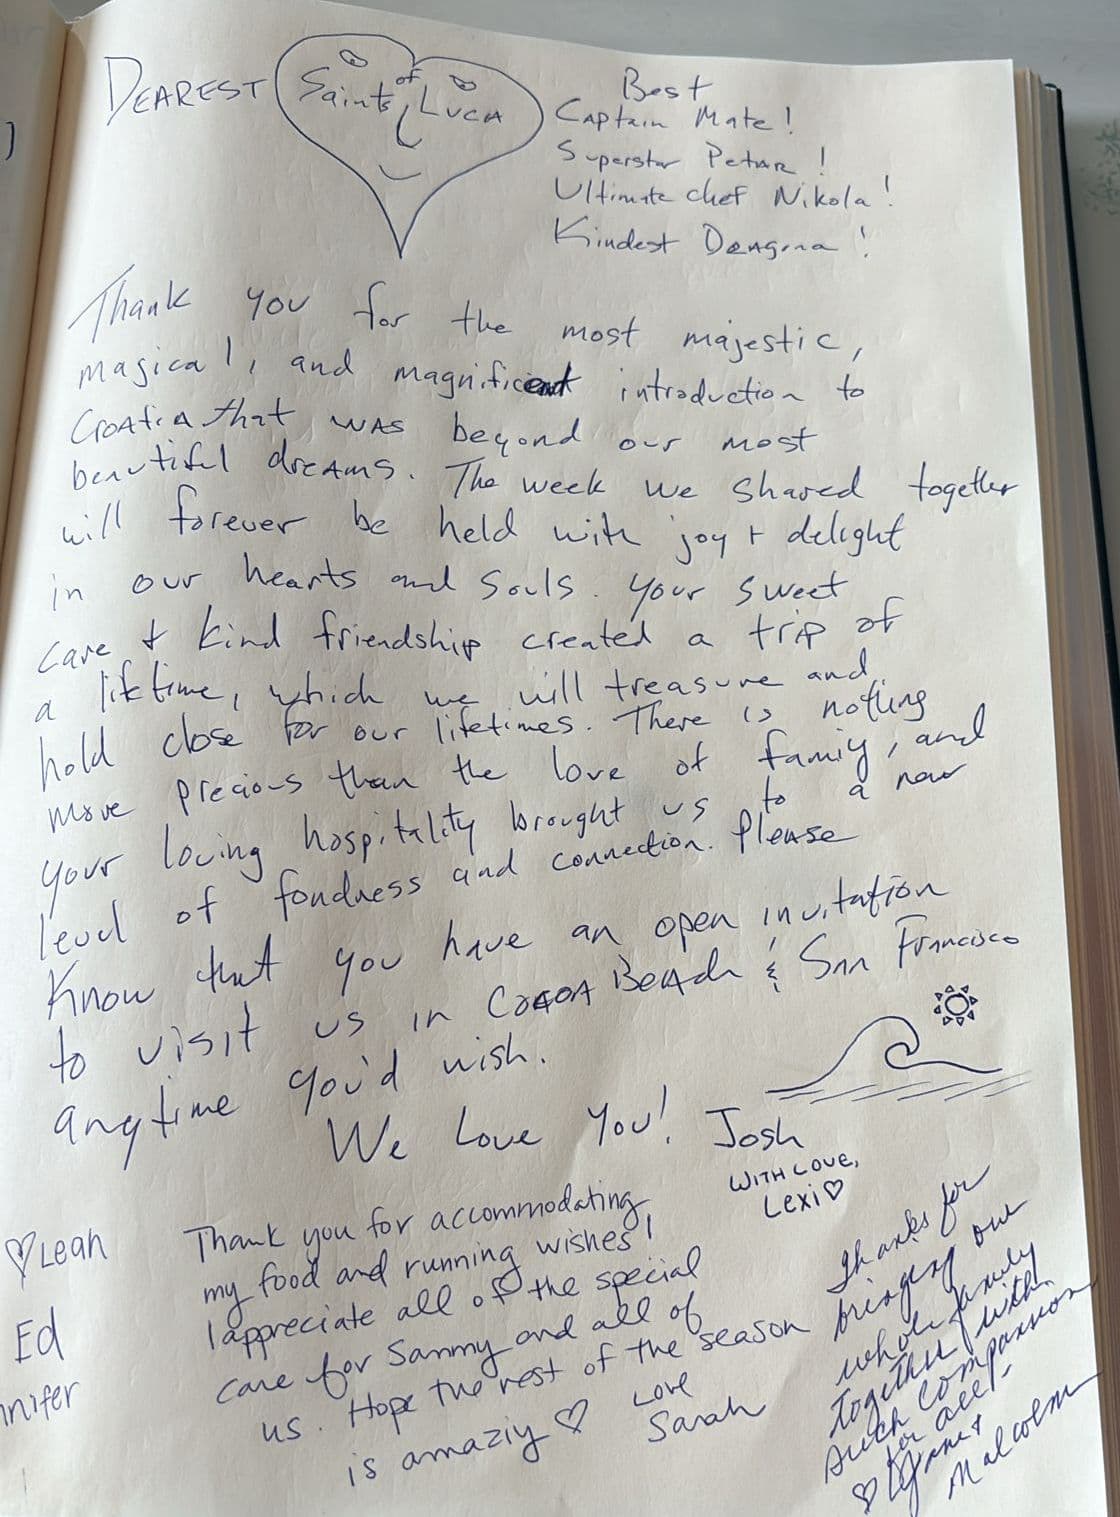 DEAREST
Saints of Luca
Best
Captain Mate!
Superstar Petar!
Ultimate chef Nikola!
Kindest Dragina!
Thank you for the most majestic,
magical, and magnificent introduction to
Croatia that was beyond our most
beautiful dreams. The week we shared together
will forever be held with joy + delight
in our hearts and souls. Your sweet
care & kind friendship created a trip of
a lifetime, which we will treasure and
hold close for our lifetimes. There is nothing
more precious than the love of family, and
your loving hospitality brought us to a new
level of fondness and connection. Please
Know that you have an open invitation
to visit us in Cocoa Beach & San Francisco
anytime you'd wish.
We Love You! Josh
WITH LOVE,
Lexi♡
♡Leah
Ed
nnifer
Thank you for accommodating
my food and running wishes!
I appreciate all of the special
care for Sammy and all of
us. Hope the rest of the season
is amaziy ♡ Love
Sarah
Thanks for
bringing our
whole family
together with
such companion
for all!-
♡ +
Malcolm